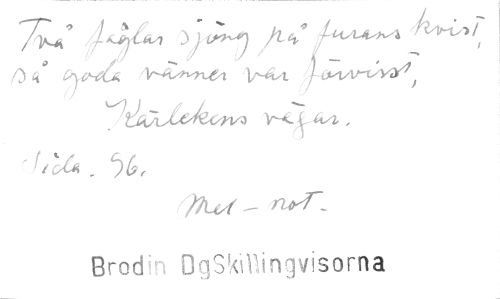 Två fåglar sjöng på furans kvist,
så goda vänner var förvisst,
Kärlekens vägar.
Sida. 96.
Mel - not.
Brodin DgSkillingvisorna